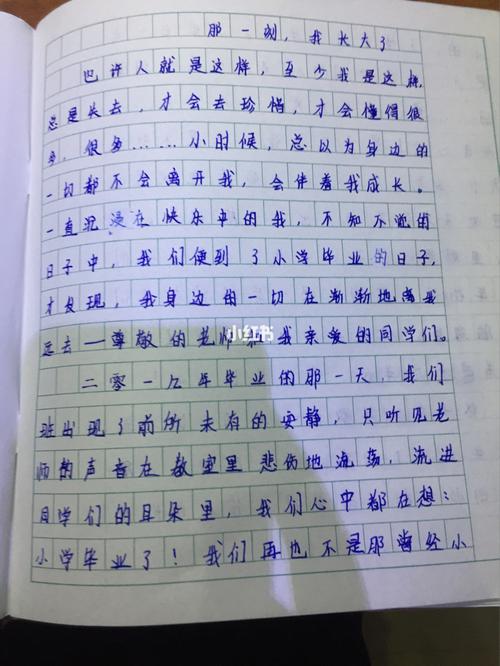 那一刻，我长大了
也许人就是这样，至少我是这样，
总是失去，才会去珍惜，才会懂得很
多，很多……小时候，总以为身边的
一切都不会离开我，会伴着我成长。
一直沉浸在快乐中的我，不知不觉的
日子中，我们便到了小学毕业的日子，
才发现，我身边的一切在渐渐地离我
远去—尊敬的老师和我亲爱的同学们。
二零一几年毕业的那一天，我们
班出现了前所未有的安静，只听见老
师的声音在教室里悲伤地流荡，流进
同学们的耳朵里，我们心中都在想：
小学毕业了！我们再也不是那曾经小
小红书